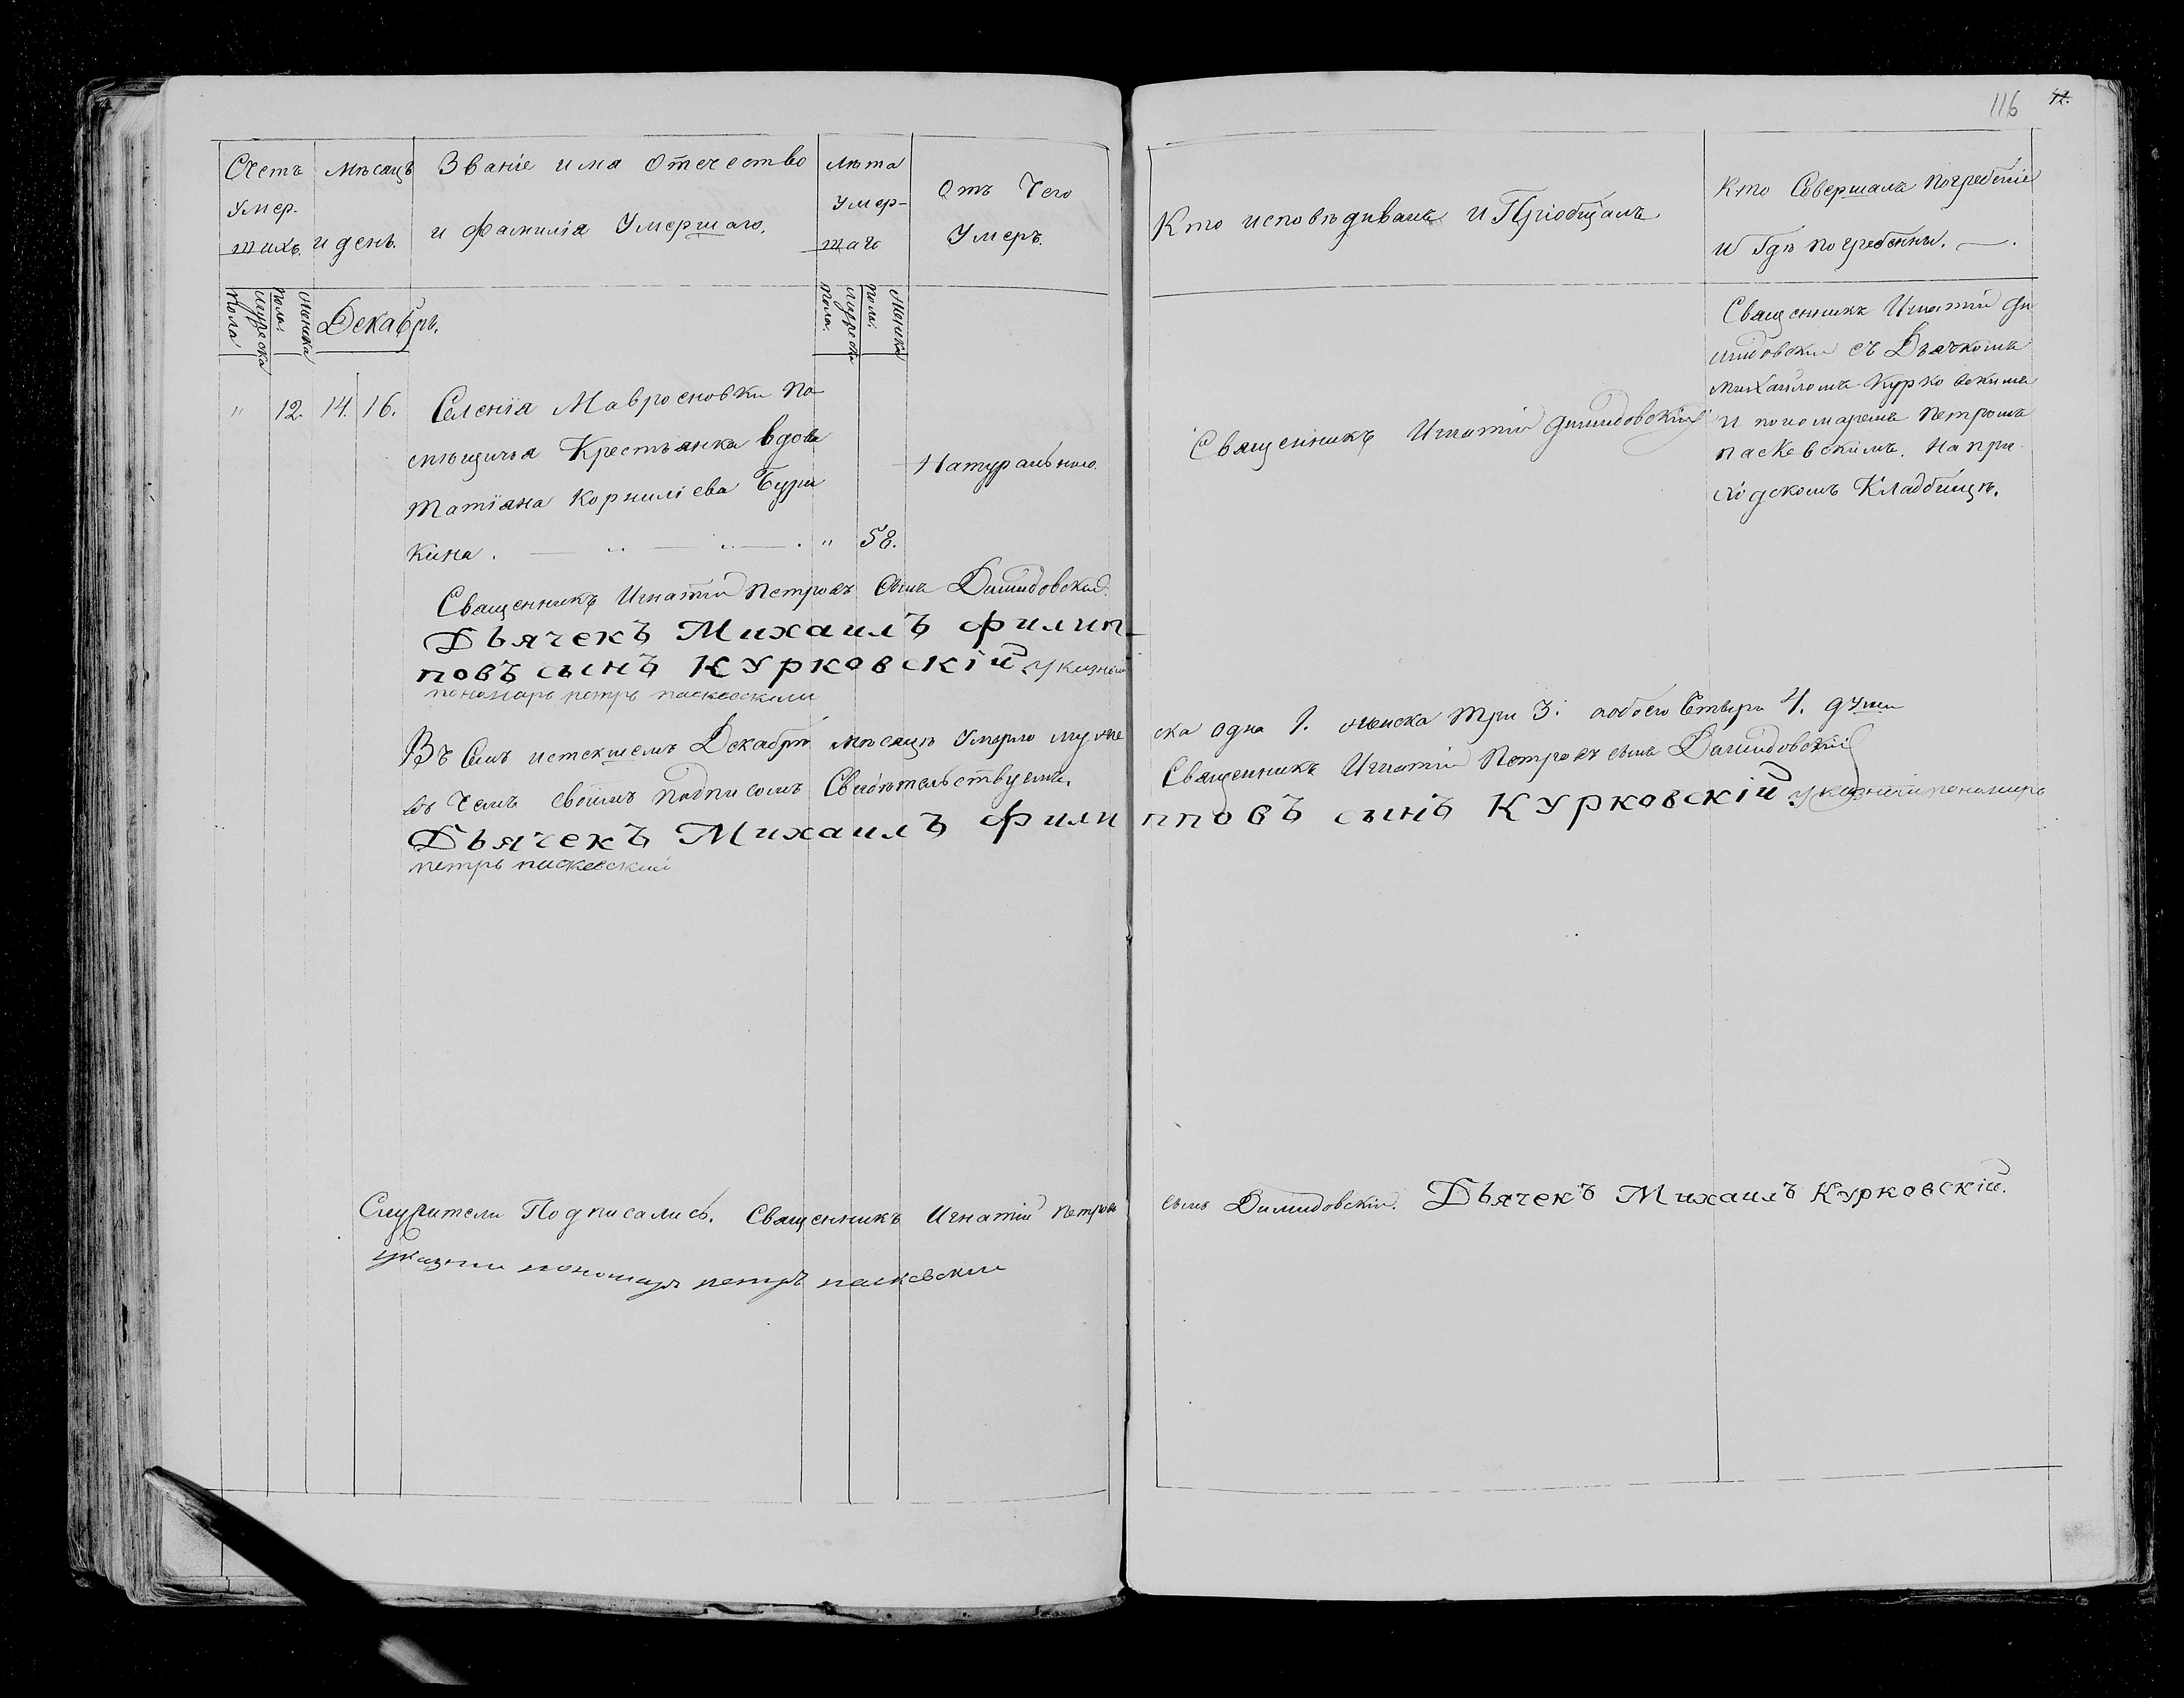 116 42.
Счетъ
Умер-
шихъ.
Мѣсяцъ
и день.
Званіе имя Отечество
и Фамилія Умершаго.
Лѣта
Умер-
шаго
Отъ Чего
Умеръ.
Кто исповѣдывалъ и Пріобщалъ
Кто Совершалъ погребеніе
и Гдѣ погребенны.
Мужеска
Пола
Женска
Пола.
Декабрь.
Мужеска
Пола.
Женска
Пола.
" 12. 14. 16.
Селенія Мавросновки по
мѣщичья Крестьянка вдова
Татіана Корниліева Бури
кина. " 58.
Натурально.
Священникъ Игнатій Димидовскій
Священникъ Игнатій Ди
мидовскій съ Дьячкомъ
Михаиломъ Курковскимъ
и пономаремъ Петромъ
Паскевскимъ. На при
ходскомъ Кладбищѣ.
Священникъ Игнатій Петровъ Сынъ Димидовскій.
Дьячекъ Михаилъ Филип-
повъ сынъ Курковскій указный
пономарь петръ паскевский
Въ Семъ истекшемъ Декабрѣ мѣсяцѣ Умерло муже ска одна 1. женска три 3. обоего Четыри 4. души
въ Чемъ своимъ подписомъ Свидѣтельствуемъ. Священникъ Игнатій Петровъ сынъ Димидовскій
Дьячекъ Михаилъ Фили пповъ сынъ Курковскій указный пономарь
петръ паскевский
Служители Подписались. Священникъ Игнатій Петровъ сынъ Димидовскій. Дьячекъ Михаилъ Курковскій.
указный пономарь петръ паскевский